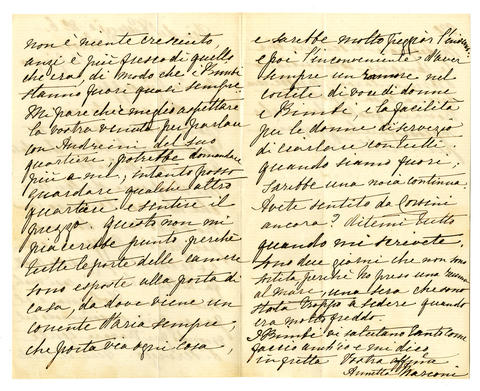 non è niente cresciuto,
anzi è più fresco di quello
che era, di modo che i Bimbi
stanno fuori quasi sempre.
Mi pare che è meglio aspettare
la vostra venuta per parlare
con Andreini del suo
quartiere, potrebbe domandare
più a me, intanto posso
guardare qualche altro
quartiere e sentire il
prezzo. Questo non mi
piacerebbe punto, perchè
tutte le porte delle camere
sono esposte alla porta di
casa, da dove viene un
corrente d'aria sempre,
che porta via ogni cosa,
e sarebbe molto peggio
e poi l'inconveniente d'aver
sempre un rumore nel
cortile di voci di donne
e Bimbi, e la facilità
per le donne di servizio
di ciarlare con tutti.
quando siamo fuori.
Sarebbe una noia continua.
Avete sentito da Corsini
ancora? Ditemi tutto
quando mi scrivete.
Sono due giorni che non sono
sortita perchè ho preso una
al mare, una sera che sono
stata troppo a sedere quando
era molto freddo.
I Bimbi vi salutano tanto come
faccio anch'io e mi dico
in fretta Vostra affma
Annetta